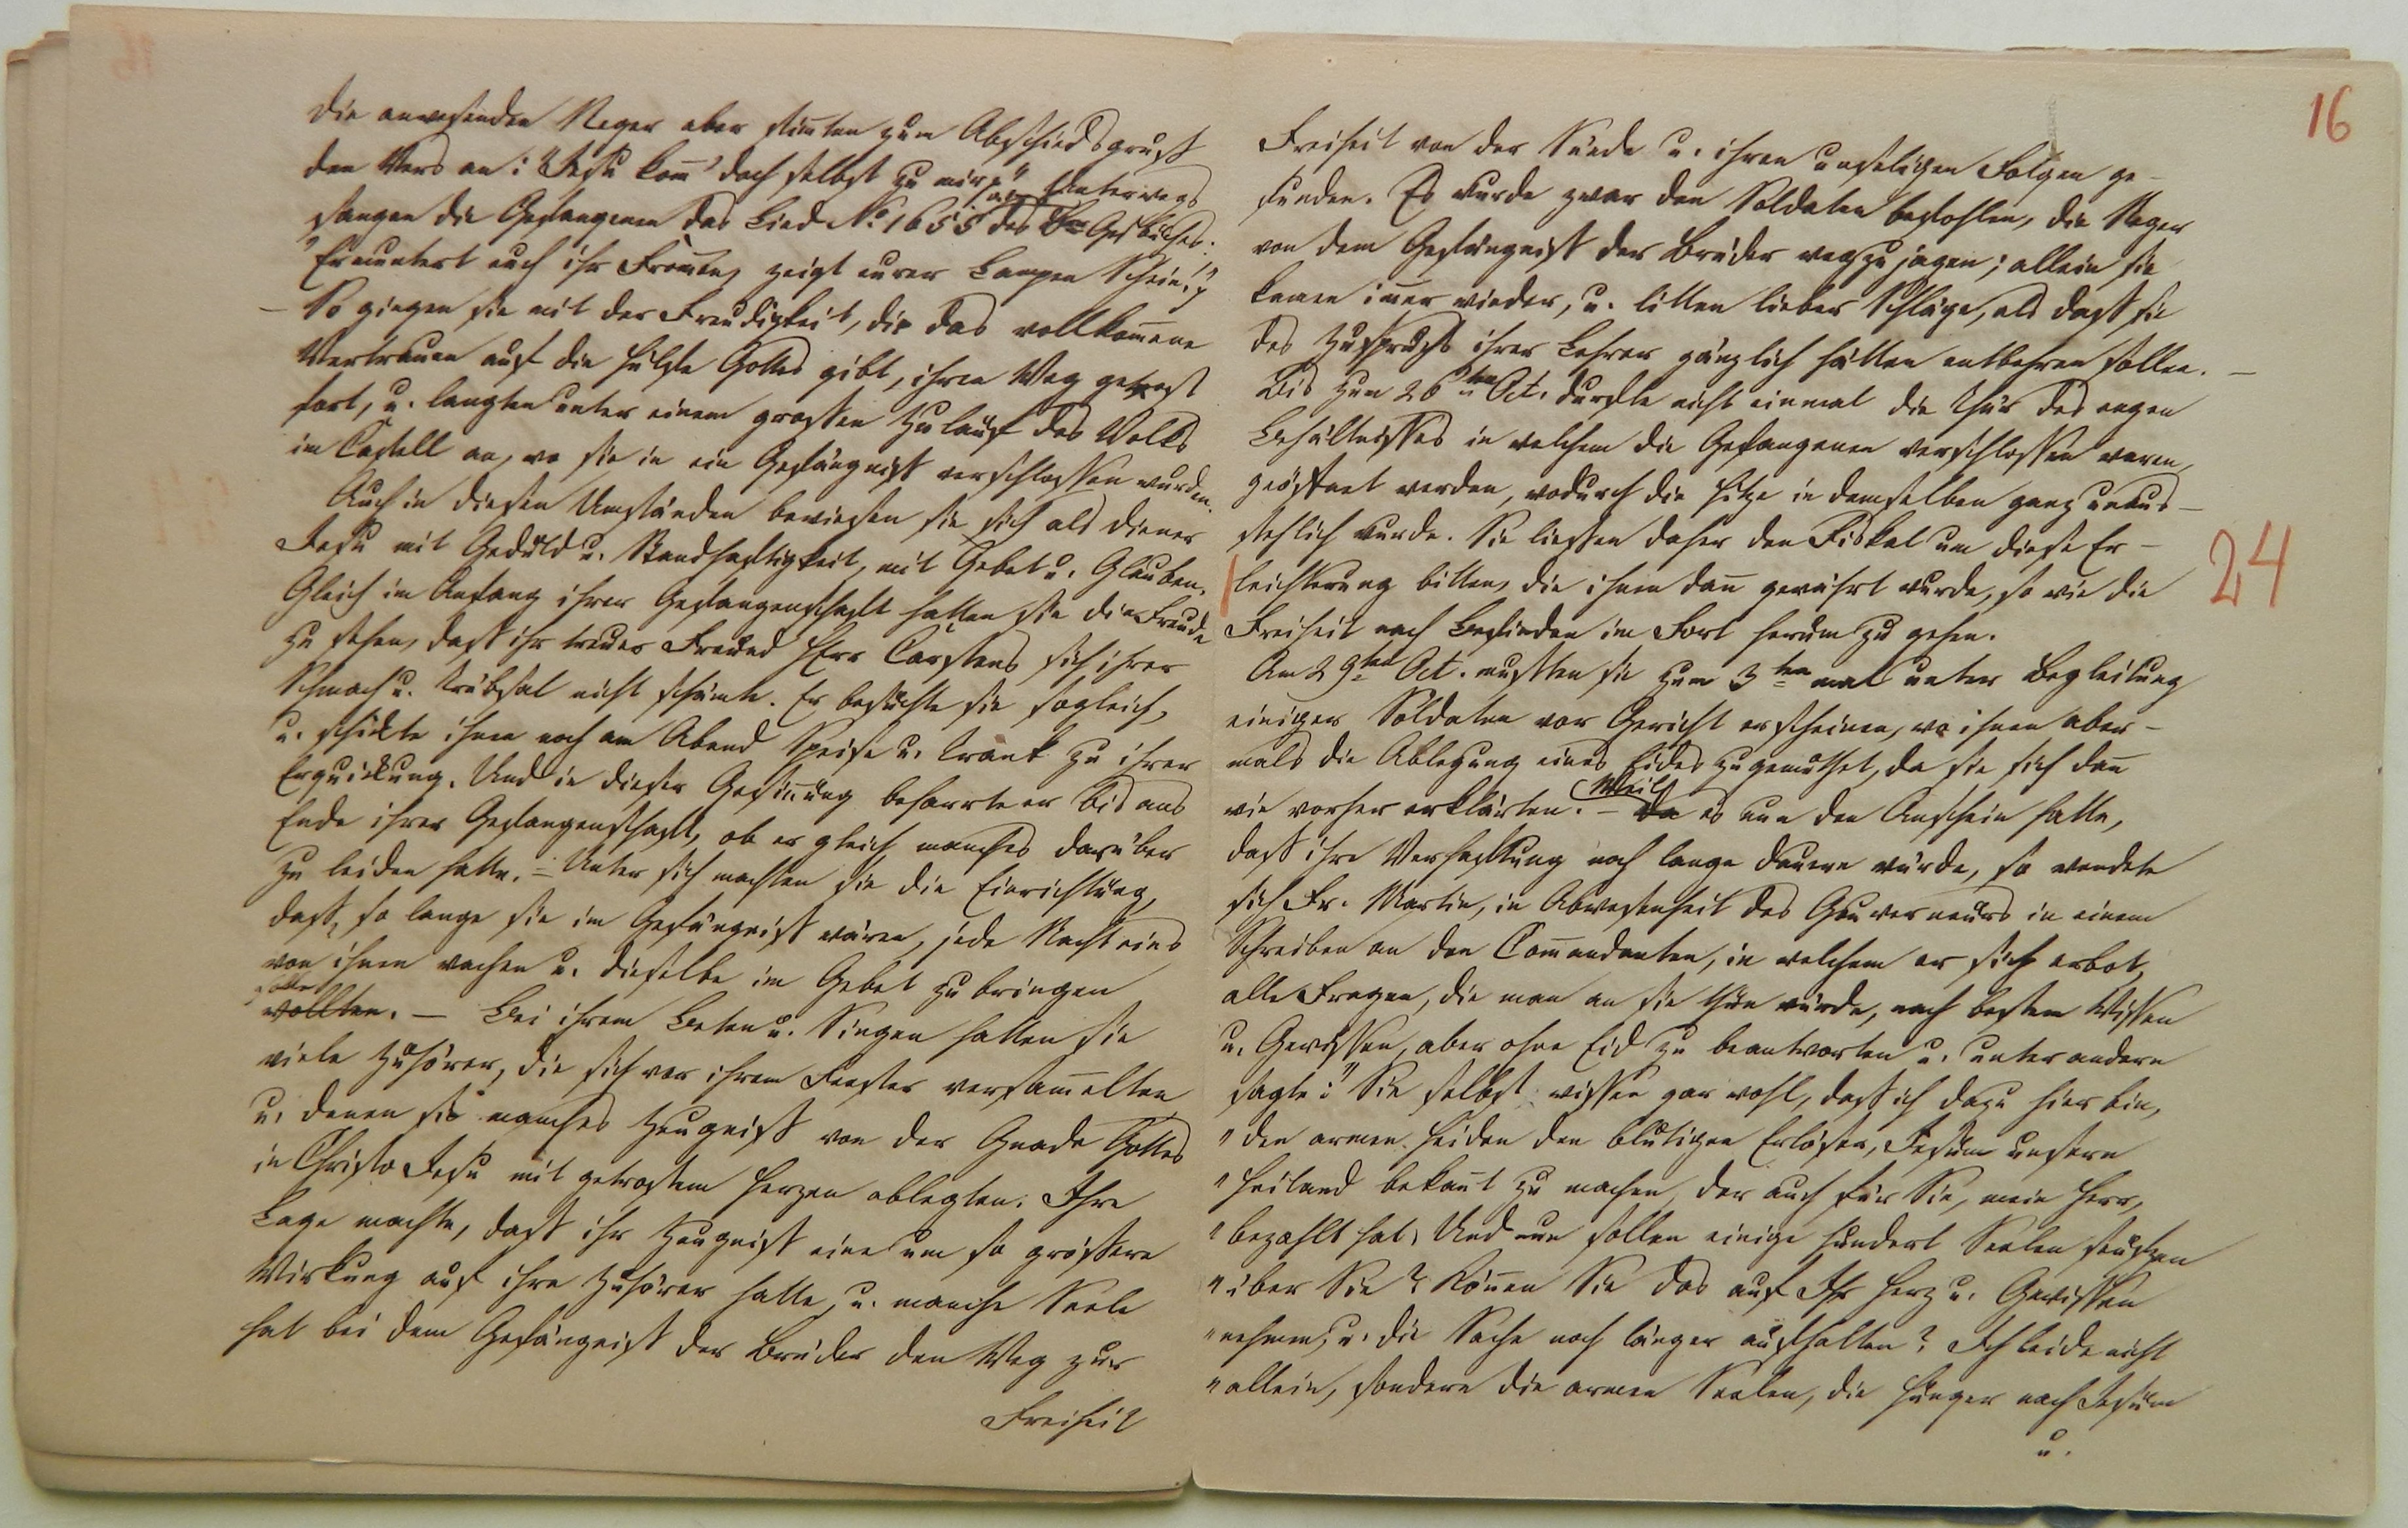 die anwesenden Neger aber stim̄ten zum Abschiedsgruß
den Vers an: "Jesu kom̄' doch selbst zu mir p" Unterwegs
sangen die Gefangenen das Lied No. 1655 des Gesbuches:
"Ermuntert euch ihr From̄en, zeigt eurer Lampen Schein!" p
— So giengen sie mit der Freudigkeit, die das vollkom̄ene
Vertrauen auf die Hülfe Gottes gibt, ihren Weg getrost
fort, u. langten unter einem grossen Zulauf des Volks
im Castell an, wo sie in ein Gefängniß verschlossen wurden.
Auch in diesen Umständen bewiesen sie sich als Diener
Jesu mit Geduld u. Standhaftigkeit, mit Gebet u. Glauben.
Gleich im Anfang ihrer Gefangenschaft hatten sie die Freude
zu sehen, daß ihr treuer Freund Herr Carstens sich ihrer
Schmach u. Trübsal nicht schämte. Er besuchte sie sogleich,
u. schikte ihnen noch am Abend Speise u. Trank zu ihrer
Erquickung. Und in dieser Gesin̄ung beharrte er bis ans
Ende ihrer Gefangenschaft, ob er gleich manches darüber
zu leiden hatte. — Unter sich machten sie die Einrichtung,
daß, so lange sie im Gefängniß wären, jede Nacht eins
von ihnen wachen u. dieselbe im Gebet zubringen
sollte
wollten. — Bei ihrem Beten u. Singen hatten sie
viele Zuhörer, die sich vor ihrem Fenster versam̄elten
u. denen sie manches Zeugniß von der Gnade Gottes
in Christo Jesu mit getrostem Herzen ablegten. Ihre
Lage machte, daß ihr Zeugniß eine um so grössere
Wirkung auf ihre Zuhörer hatte, u. manche Seele
hat bei dem Gefängniß der Brüder den Weg zur
Freiheit
16
Freiheit von der Sünde u. ihren unseligen Folgen ge-
funden. Es wurde zwar den Soldaten befohlen, die Neger
von dem Gefängniß der Brüder wegzujagen; allein sie
kamen im̄er wieder, u. litten lieber Schläge, als daß sie
des Zuspruchs ihrer Lehrer gänzlich hätten entbehren sollen. —
Bis zum 26ten Oct. durfte nicht einmal die Thür des engen
Behältnisses in welchem die Gefangenen verschlossen waren,
geöffnet werden, wodurch die Hitze in demselben ganz unaus-
stehlich wurde. Sie liessen daher den Fiskal um diese Er-
leichterung bitten, die ihnen dan̄ gewährt wurde, so wie die
24
Freiheit nach Befinden im Fort herum zu gehen.
Am 29ten Oct. mußten sie zum 3ten mal unter Begleitung
einiger Soldaten vor Gericht erscheinen, wo ihnen aber-
mals die Ablegung eines Eides zugemuthet, da sie sich dan̄
Weil
wie vorher erklärten. — Da es nun den Anschein hatte,
daß ihre Verhaftung noch lange dauern würde, so wendete
sich Br. Martin, in Abwesenheit des Gouverneurs in einem
Schreiben an den Com̄andanten, in welchem er sich erbot,
alle Fragen, die man an sie thun würde, nach bestem Wissen
u. Gewissen, aber ohne Eid zu beantworten u. unter andern
sagte: "Sie selbst wissen gar wohl, daß ich dazu hier bin,
"den armen Heiden den blutigen Erlöser, Jesum unsern
"Heiland bekan̄t zu machen, der auch für Sie, mein Herr,
"bezahlt hat. Und nun sollen einige hundert Seelen seufzen
"über Sie? Kön̄en Sie das auf Ihr Herz u. Gewissen
"nehmen, u. die Sache noch länger aufhalten? Ich leide nicht
"allein, sondern die armen Seelen, die Hunger nach Jesum
u.